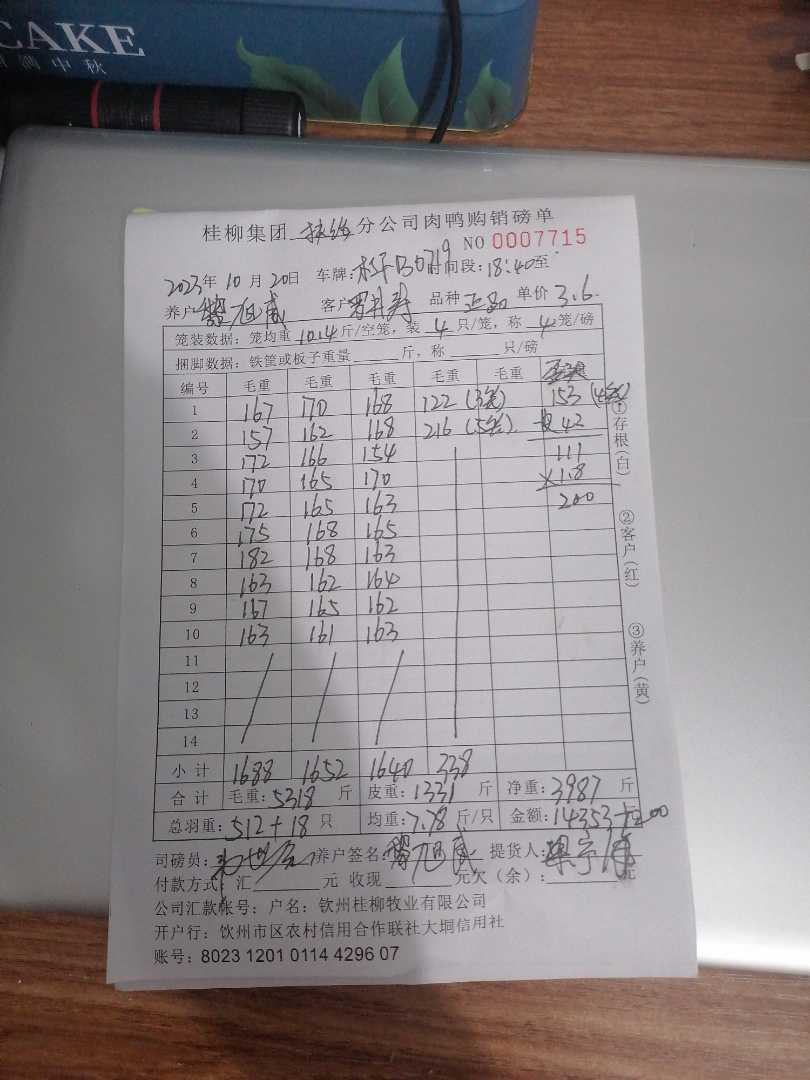 CAKE
中秋
桂柳集团 分公司肉鸭购销磅单
NO 0007715
2023年 10月 20日 车牌: 时间段:18:40至
养户 旭威 客户 品种 正品 单价 3.6.
笼装数据:笼均重 10.4 斤/空笼,装 4 只/笼,称 4 笼/磅
捆脚数据:铁筐或板子重量 斤,称 只/磅
编号 毛重 毛重 毛重 毛重 毛重
1 167 170 168 122 (3笼) 153 (4笼)
2 157 162 168 216 (5笼) 42
3 172 166 154 111
4 170 165 170 ×1.8
5 172 165 163 200
6 175 168 165
7 182 168 163
8 163 162 164
9 167 165 162
10 163 161 163
11
12
13
14
小计 1688 1652 1640 338
合计 毛重:5318 斤 皮重:1331 斤 净重:3987 斤
总羽重:512+18 只 均重:7.78 斤/只 金额:14353+200
司磅员: 养户签名: 旭威 提货人:
付款方式:汇 元 收现 元欠(余): 元
公司汇款帐号:户名:钦州桂柳牧业有限公司
开户行:钦州市区农村信用合作联社大垌信用社
账号:8023 1201 0114 4296 07
①存根(白)
②客户(红)
③养户(黄)